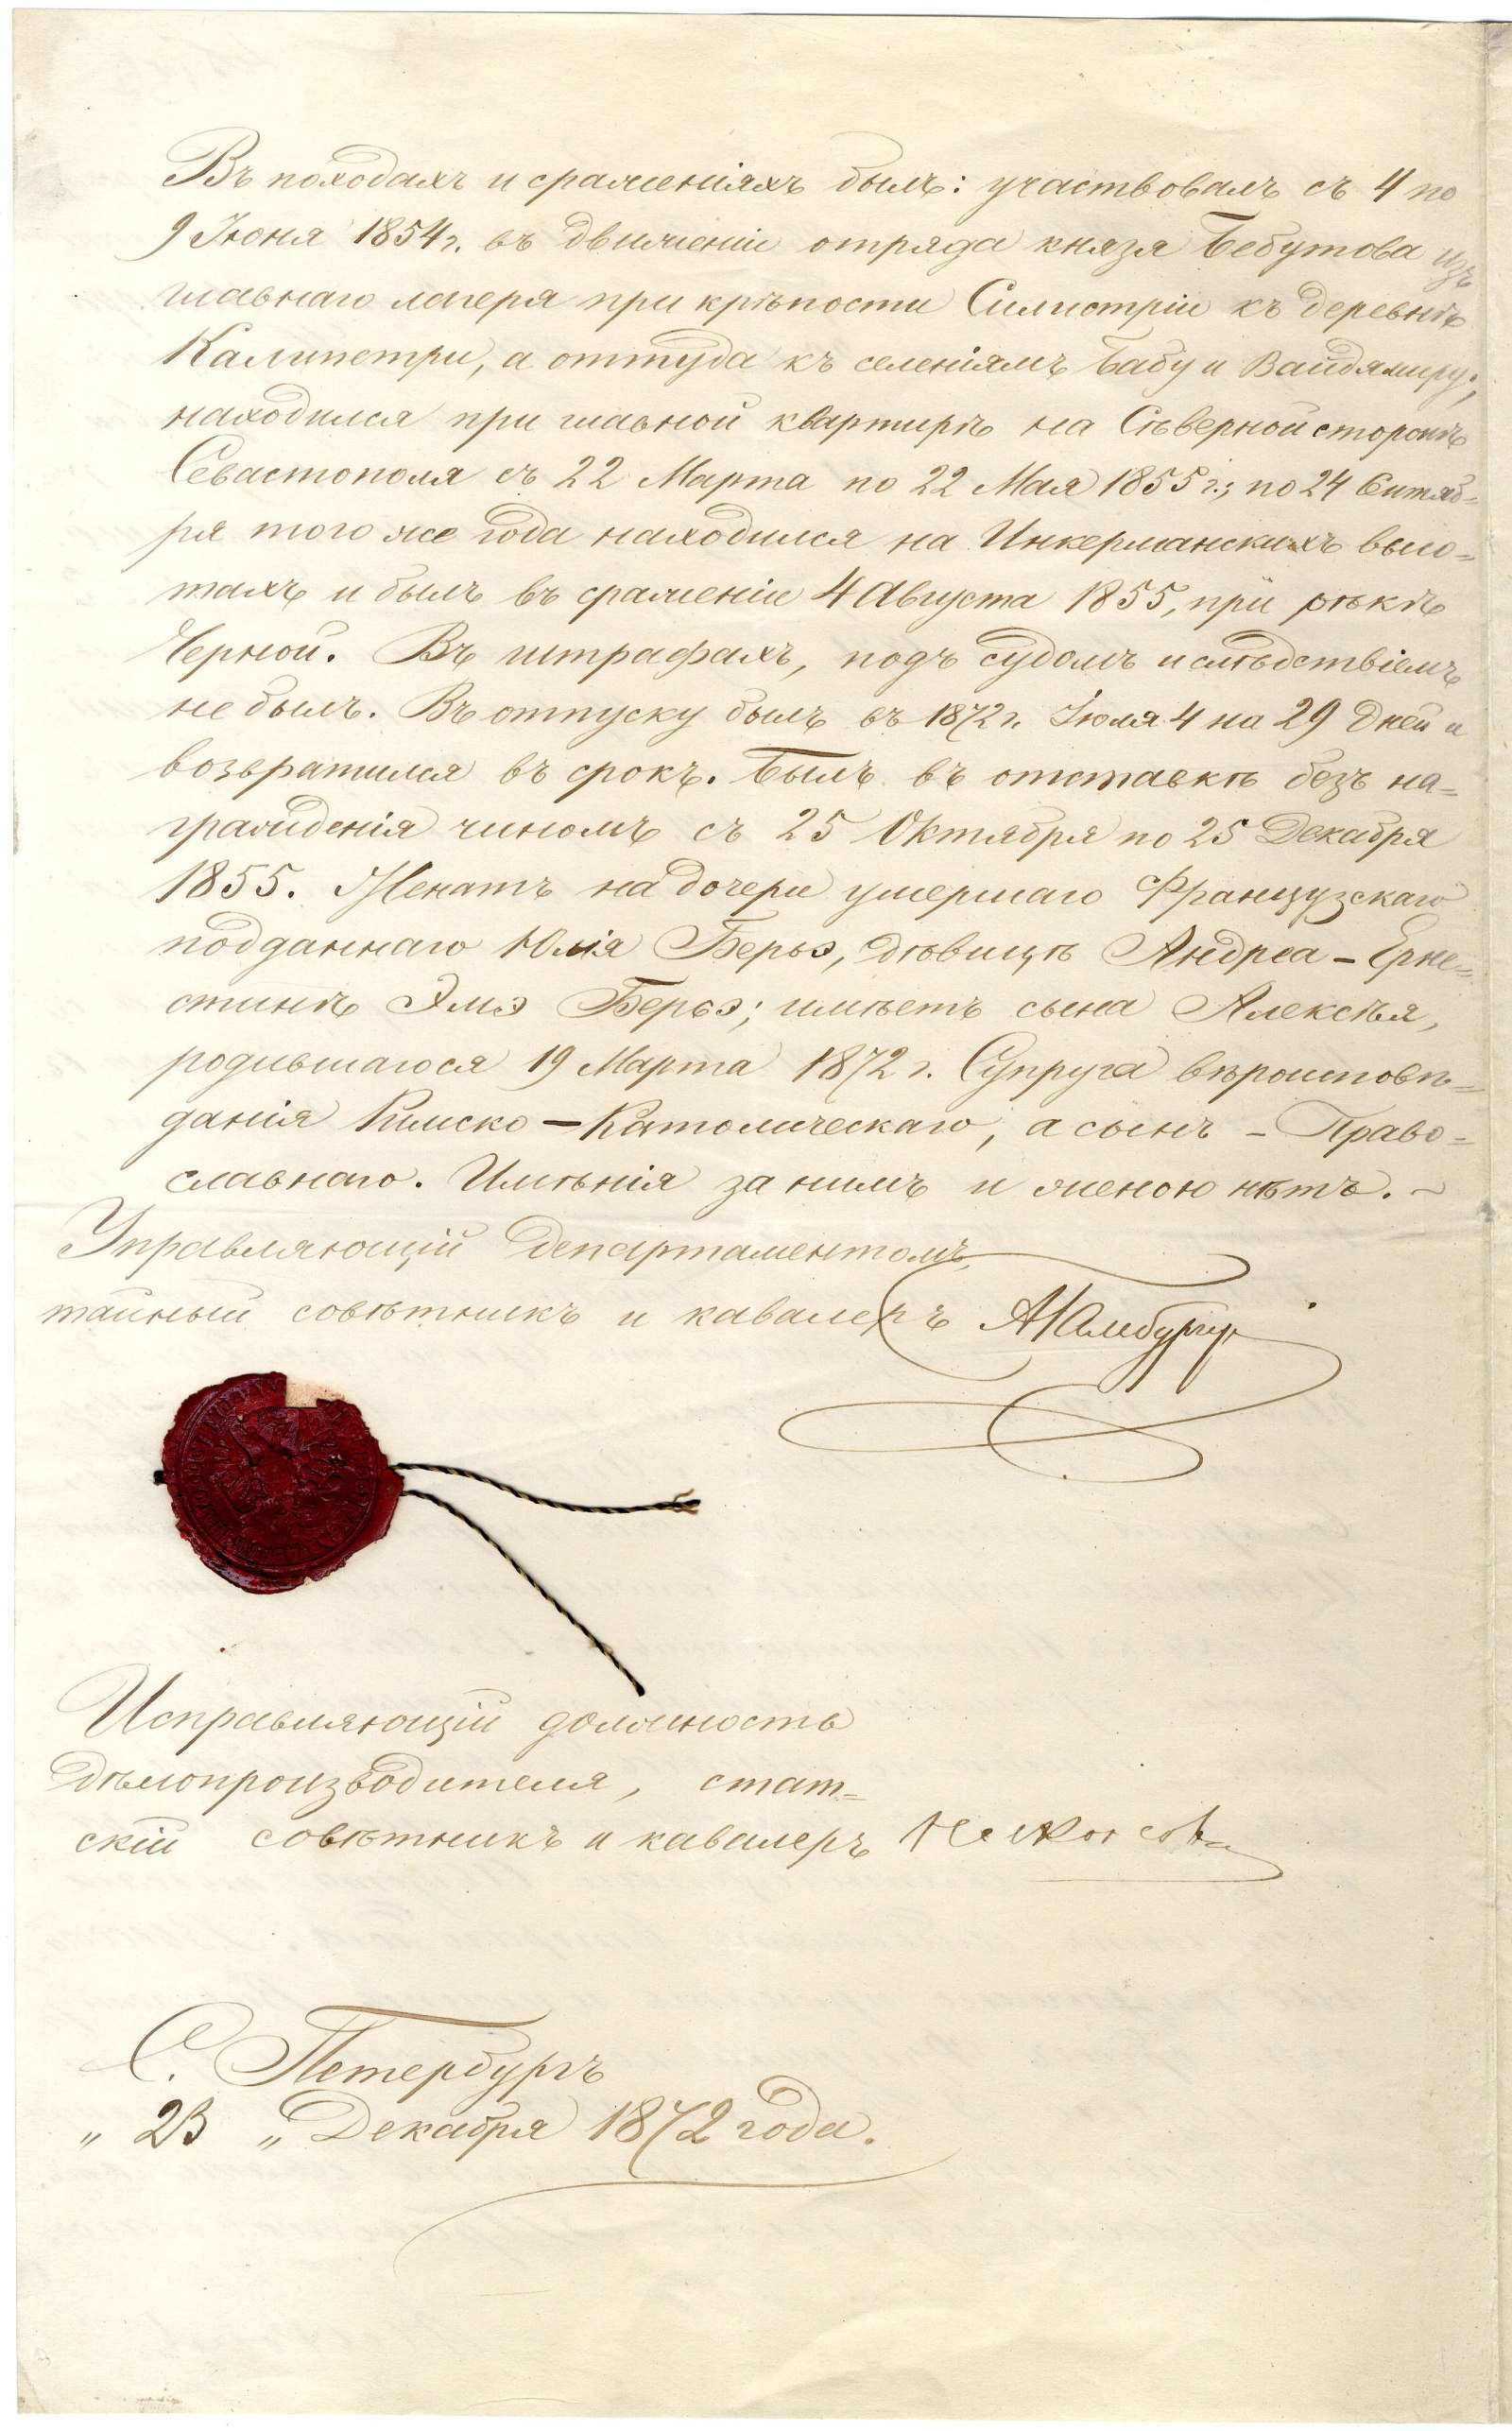 Въ походахъ и сраженіяхъ былъ: участвовалъ съ 4 по
9 Іюня 1854 г. въ движеніи отряда князя Бебутова изъ
главнаго лагеря при крѣпости Силистріи къ деревнѣ
Калипетри, а оттуда къ селеніямъ Бабу и Вайдамиру;
находился при главной квартирѣ на Сѣверной сторонѣ
Севастополя съ 22 Марта по 22 Мая 1855 г.; по 24 Сентяб=
ря того же года находился на Инкерманскихъ высо=
тахъ и былъ въ сраженіи 4 Августа 1855, при рѣкѣ
Черной. Въ штрафахъ, подъ судомъ и слѣдствіемъ
не былъ. Въ отпуску былъ въ 1872 г. Іюля 4 на 29 дней и
возвратился въ срокъ. Былъ въ отставкѣ безъ на=
гражденія чиномъ съ 25 Октября по 25 Декабря
1855. Женатъ на дочери умершаго Французскаго
подданнаго Юлія Берьэ, дѣвицѣ Андреа - Ерне=
стинѣ Эмэ Берьэ; имѣетъ сына Алексѣя,
родившагося 19 Марта 1872 г. Супруга вѣроисповѣ=
данія Римско - Католическаго, а сынъ - Право=
славнаго. Имѣнія за нимъ и женою нѣтъ. ~
Управляющій Департаментомъ,
тайный совѣтникъ и кавалеръ
Исправляющій должность
дѣлопроизводителя, стат=
скій совѣтникъ и кавалеръ
С. Петербургъ
„ 23 „ Декабря 1872 года.